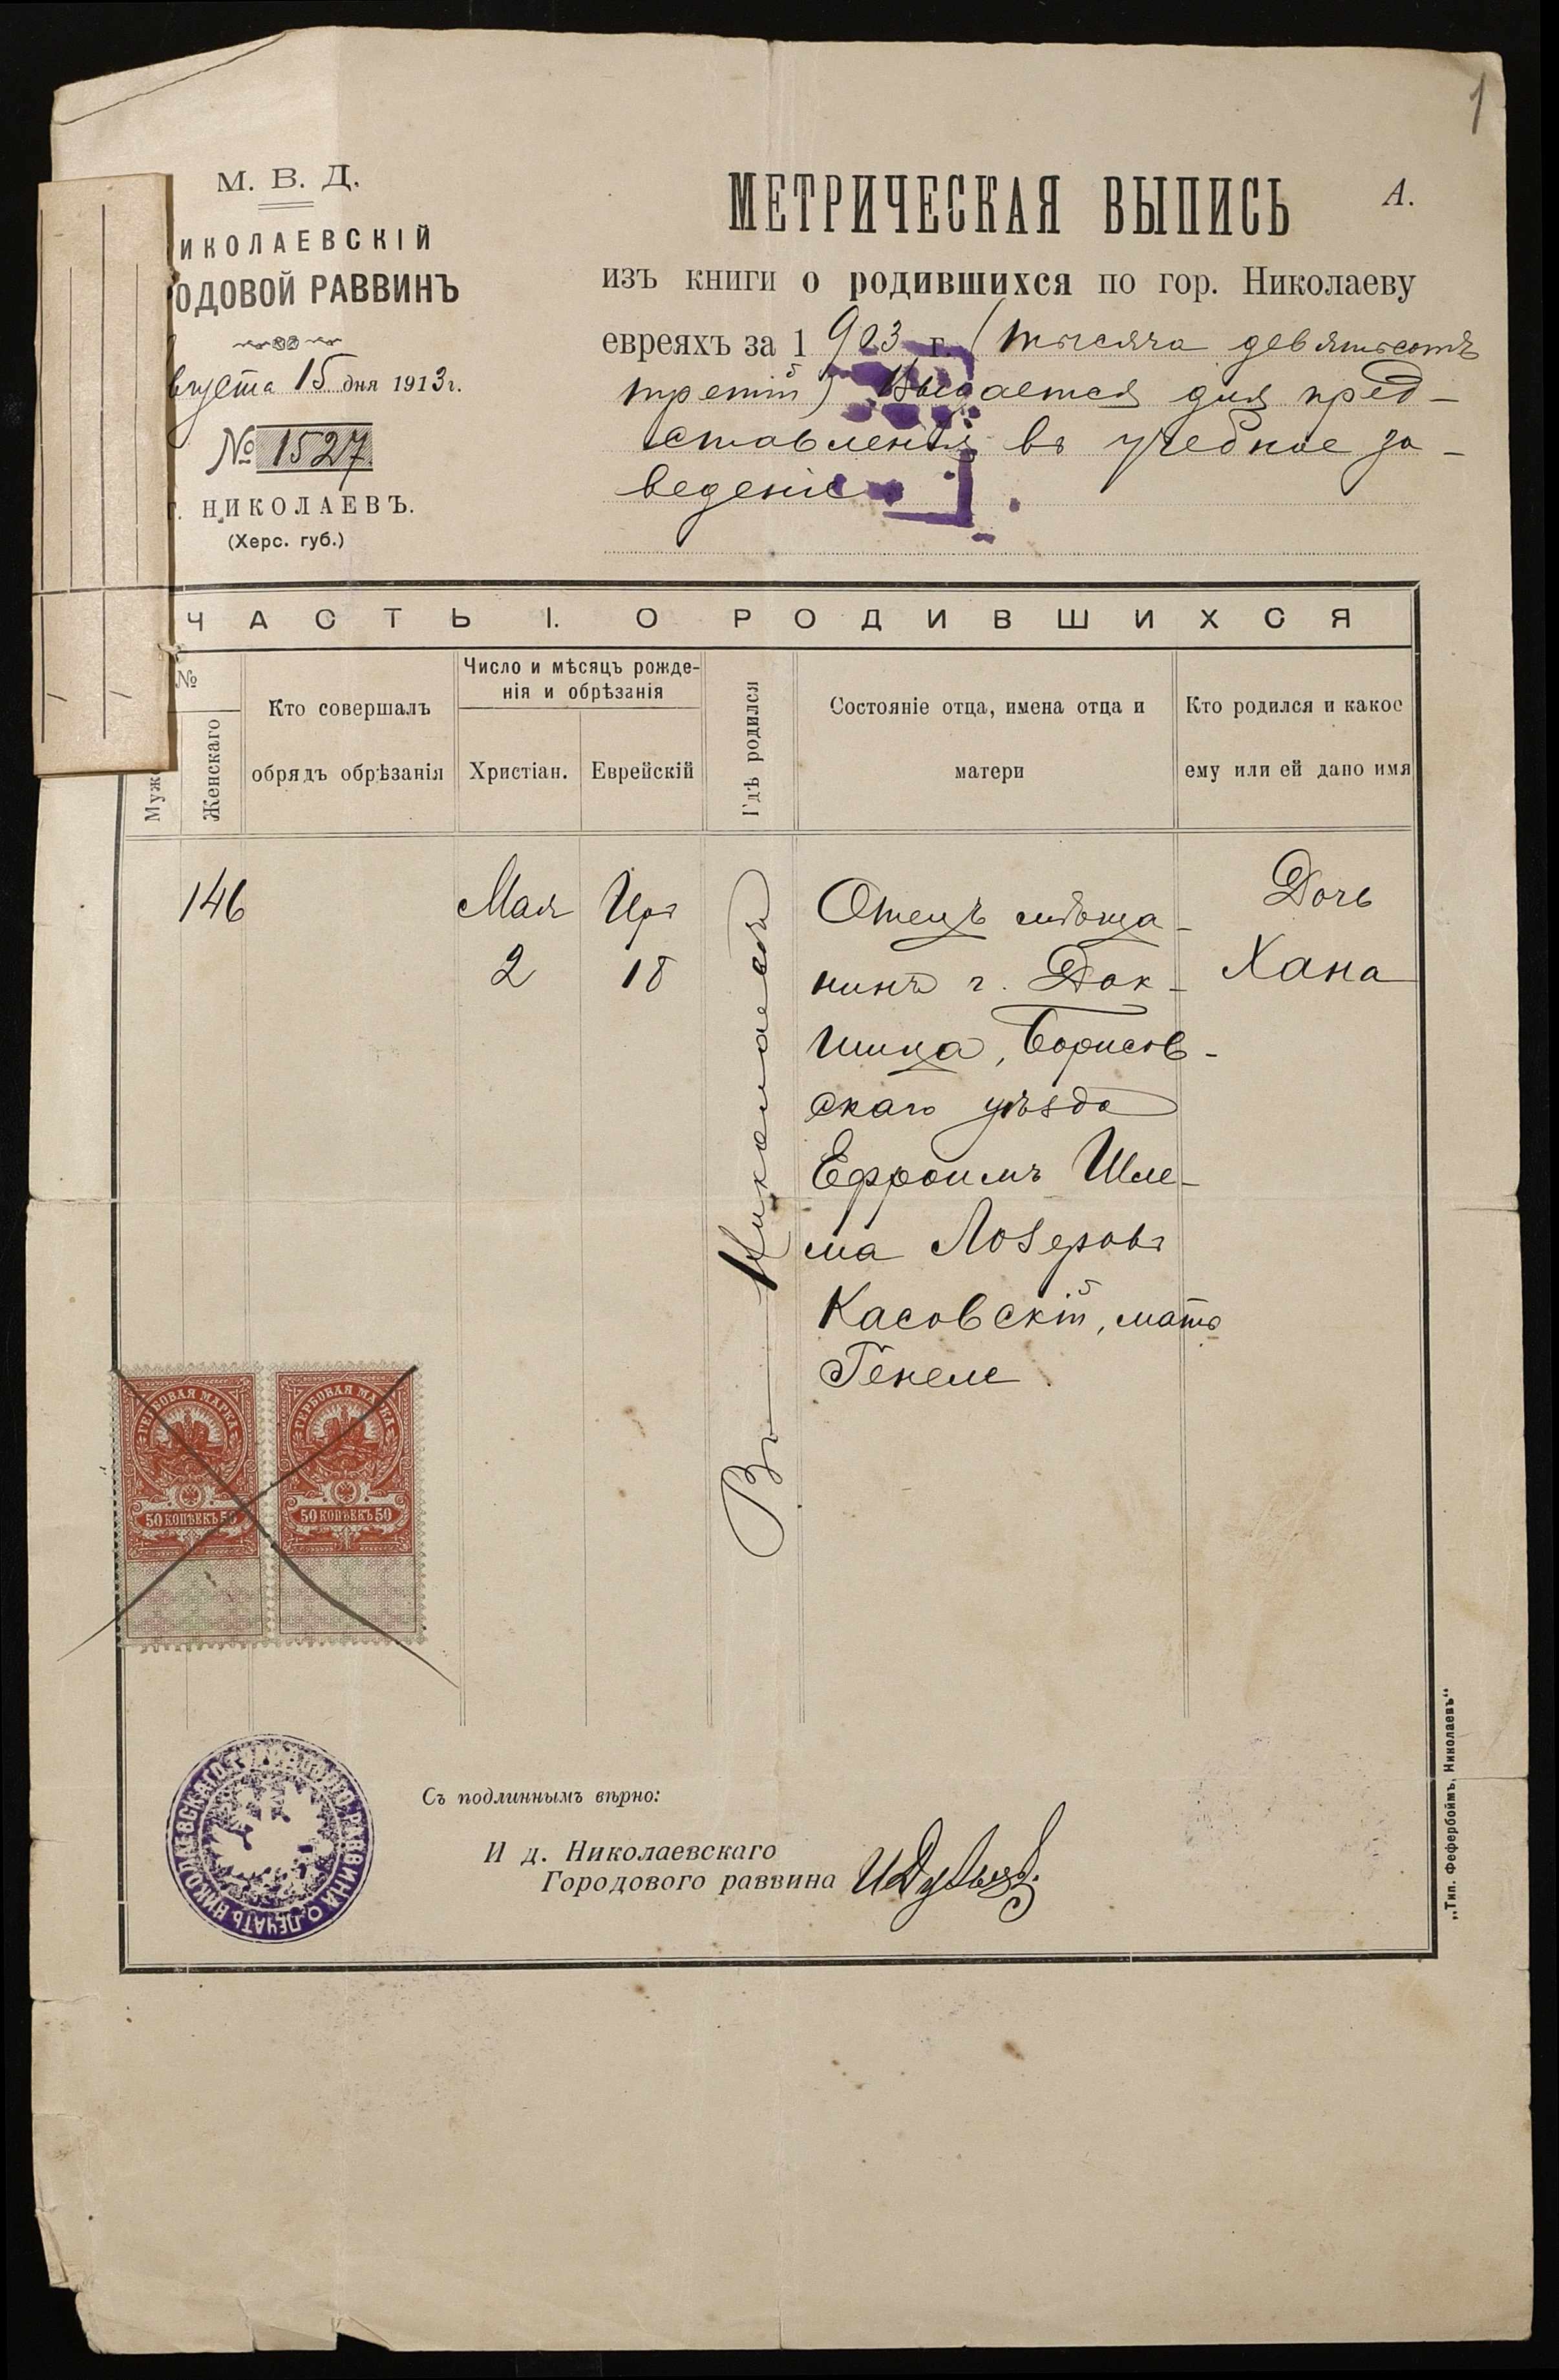 1
М. В. Д.
ИКОЛАЕВСКІЙ
ОДОВОЙ РАВВИНЪ
вгуста 15 дня 1913 г.
№ 1527
г. НИКОЛАЕВЪ.
(Херс. губ.)
МЕТРИЧЕСКАЯ ВЫПИСЬ
А.
изъ книги о родившихся по гор. Николаеву
евреяхъ за 1903 г. (тысяча девятьсотъ
третій) Выдается для пред-
ставленія въ учебное за-
веденіе.
ЧАСТЬ I. О РОДИВШИХСЯ
№
Муж
Женскаго
Кто совершалъ
обрядъ обрѣзанія
Число и мѣсяцъ рожде-
нія и обрѣзанія
Христіан.
Еврейскій
Гдѣ родился
Состояніе отца, имена отца и
матери
Кто родился и какое
ему или ей дано имя
146
Мая
2
Ира
18
Въ Николаевѣ
Отецъ мѣща-
нинъ г. Док-
шица, Борисов-
скаго уѣзда
Ефроимъ Шле-
ма Лозеровъ
Касовскій, мать
Генеле.
Дочь
Хана
ГЕРБОВАЯ МАРКА
50 КОПѢЕКЪ 50
ГЕРБОВАЯ МАРКА
50 КОПѢЕКЪ 50
ПЕЧАТЬ НИКОЛАЕВСКАГО ГОРОДОВОГО РАВВИНА
Съ подлиннымъ вѣрно:
И д. Николаевскаго
Городового раввина
„Тип. Фефербоймъ, Николаевъ“